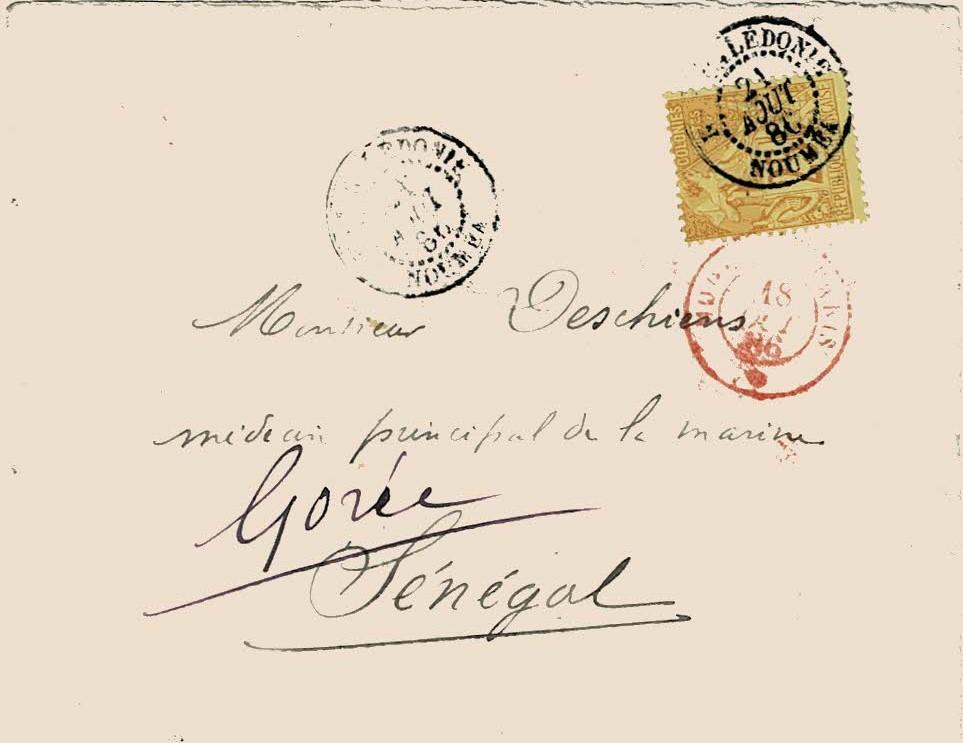 LÉDONIE
21
AOUT
86
NOUMEA
COLONIES
RÉPUBLIQUE FRANÇAISE
LÉDONIE
86
NOUMEA
18
86
Monsieur Deschiens
médecin principal de la marine
Gorée
Sénégal